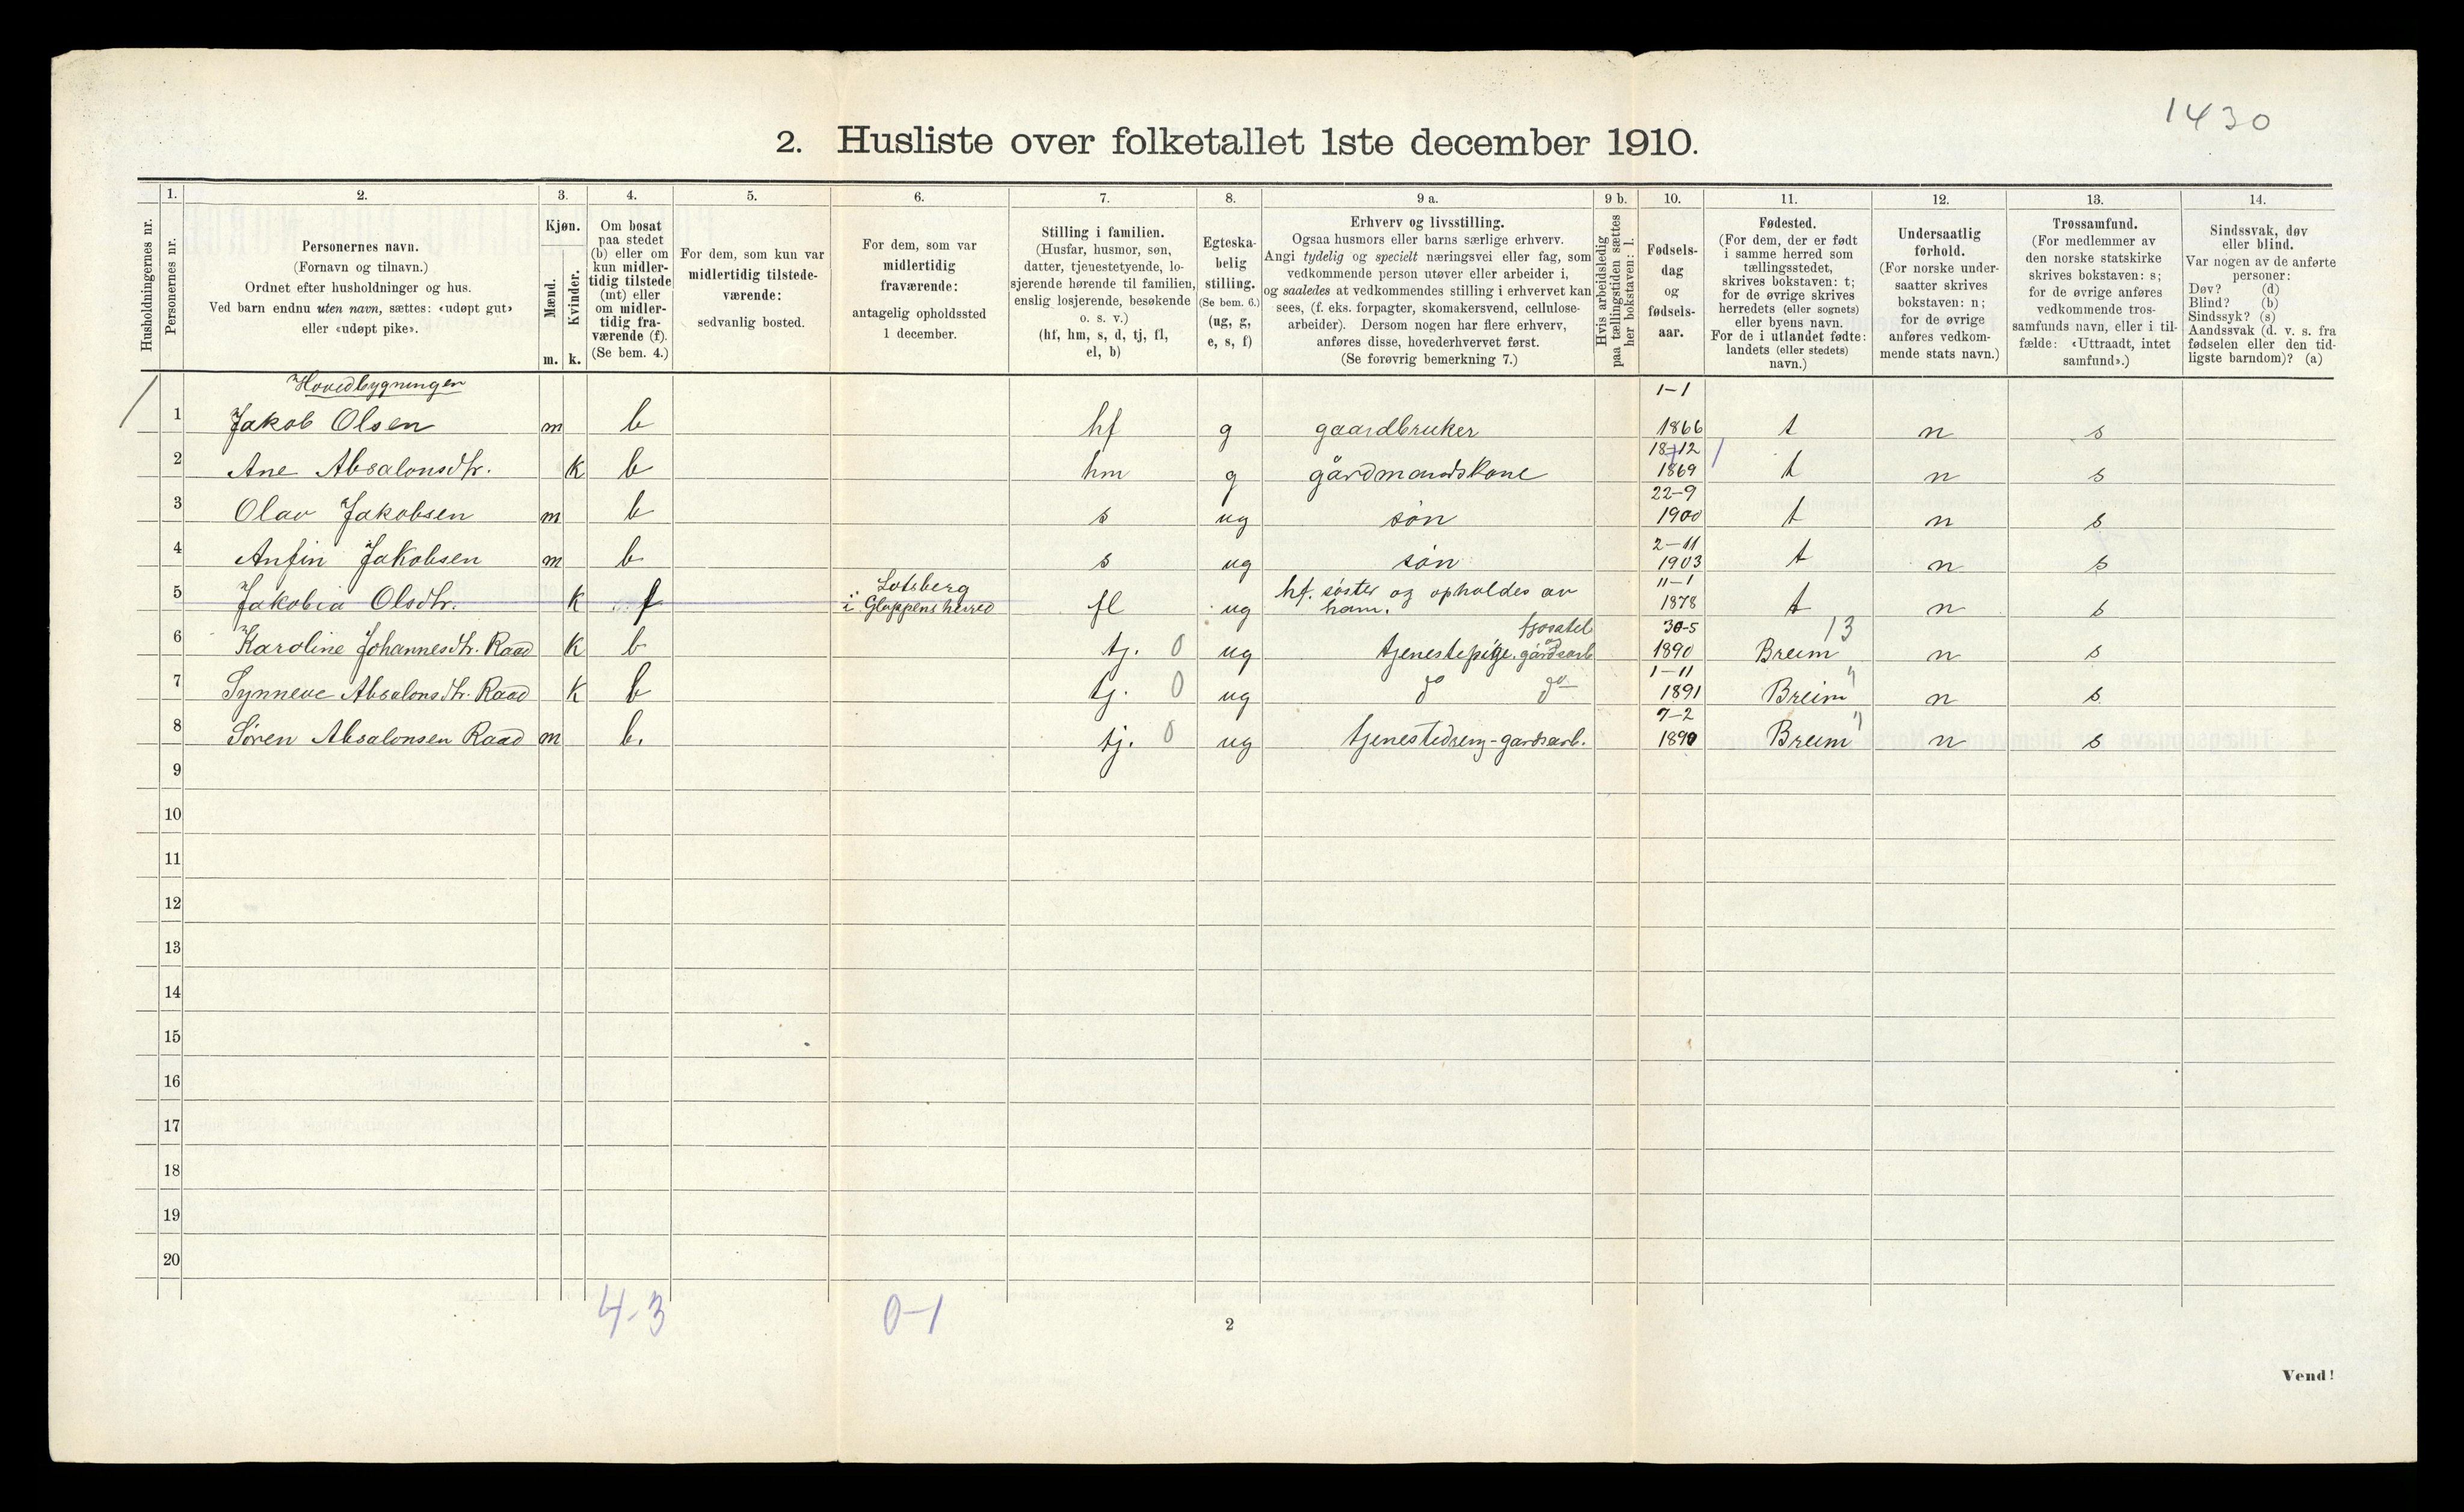 1430
2. Husliste over folketallet 1ste december 1910.
Husholdningernes nr.
1. Personernes nr.
2. Personernes navn. (Fornavn og tilnavn.) Ordnet efter husholdninger og hus. Ved barn endnu uten navn, sættes: «udøpt gut» eller «udøpt pike».
3. Kjøn. Mænd. m. Kvinder. k.
4. Om bosat paa stedet (b) eller om kun midlertidig tilstede (mt) eller om midlertidig fraværende (f). (Se bem. 4.)
5. For dem, som kun var midlertidig tilstedeværende: sedvanlig bosted.
6. For dem, som var midlertidig fraværende: antagelig opholdssted 1 december.
7. Stilling i familien. (Husfar, husmor, søn, datter, tjenestetyende, losjerende hørende til familien, enslig losjerende, besøkende o. s. v.) (hf, hm, s, d, tj, fl, el, b)
8. Egteskabelig stilling. (Se bem. 6.) (ug, g, e, s, f)
9 a. Erhverv og livsstilling. Ogsaa husmors eller barns særlige erhverv. Angi tydelig og specielt næringsvei eller fag, som vedkommende person utøver eller arbeider i, og saaledes at vedkommendes stilling i erhvervet kan sees, (f. eks. forpagter, skomakersvend, cellulosearbeider). Dersom nogen har flere erhverv, anføres disse, hovederhvervet først. (Se forøvrig bemerkning 7.)
9 b. Hvis arbeidsledig paa tællingstiden sættes her bokstaven: l.
10. Fødselsdag og fødselsaar.
11. Fødested. (For dem, der er født i samme herred som tællingsstedet, skrives bokstaven: t; for de øvrige skrives herredets (eller sognets) eller byens navn. For de i utlandet fødte: landets (eller stedets) navn.)
12. Undersaatlig forhold. (For norske undersaatter skrives bokstaven: n; for de øvrige anføres vedkommende stats navn.)
13. Trossamfund. (For medlemmer av den norske statskirke skrives bokstaven: s; for de øvrige anføres vedkommende trossamfunds navn, eller i tilfælde: «Uttraadt, intet samfund».)
14. Sindssvak, døv eller blind. Var nogen av de anførte personer: Døv? (d) Blind? (b) Sindssyk? (s) Aandssvak (d. v. s. fra fødselen eller den tidligste barndom)? (a)
Hovedbygningen
1 Jakob Olsen m b hf g gaardbruker 1-1 1866 t n s
2 Ane Absalonsdtr. k b hm g gårdmandskone 18-12 1869 t n s
3 Olav Jakobsen m b s ug søn 22-9 1900 t n s
4 Anfin Jakobsen m b s ug søn 2-11 1903 t n s
5 Jakobia Olsdtr. k f Lotsberg i Gloppens herred fl ug hf. søster og opholdes av ham. 11-1 1878 t n s
6 Karoline Johannesdtr. Raad k b tj. 0 ug tjenestepige. og gårdsarb 30-5 1890 Breim 13 n s
7 Synneve Absalonsdtr. Raad k b tj. 0 ug do do 1-11 1891 Breim " n s
8 Søren Absalonsen Raad m b. tj. 0 ug tjenestedreng-gardsarb. 7-2 1890 Breim " n s
9
10
11
12
13
14
15
16
17
18
19
20
4-3 0-1
2
Vend!